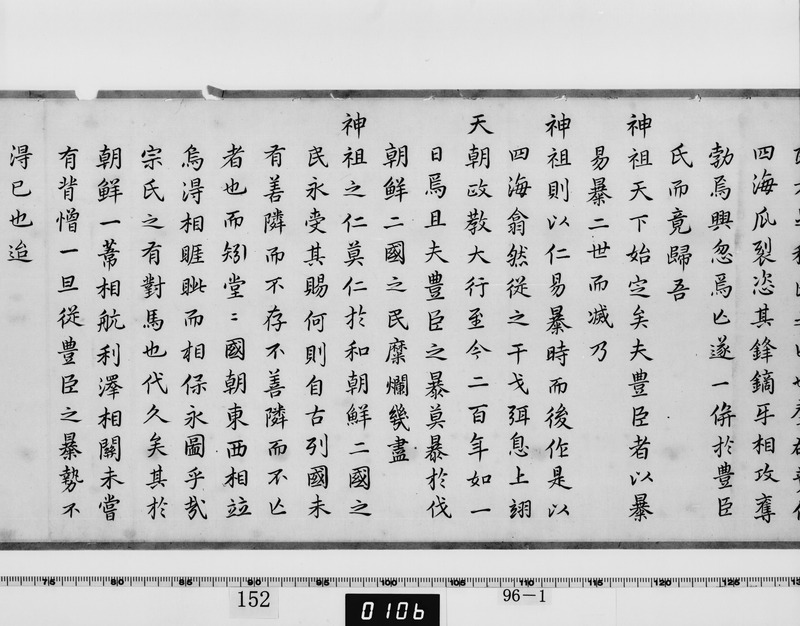 四海瓜裂恣其鋒鏑牙相攻奪
勃焉興忽焉亾遂一併於豊臣
氏而竟歸吾
神祖天下始定矣夫豊臣者以暴
易暴二世而滅乃
神祖則以仁易暴時而後作是以
四海翕然從之干戈弭息上翊
天朝政敎大行至今二百年如一
日焉且夫豊臣之暴莫暴於伐
朝鮮二國之民糜爛幾盡
神祖之仁莫仁於和朝鮮二國之
民永受其賜何則自古列國未
有善隣而不存不善隣而不亾
者也而矧堂〻國朝東西相竝
烏淂相睚眦而相保永圖乎哉
宗氏之有對馬也代久矣其於
朝鮮一葦相航利澤相關未嘗
有背憎一旦從豊臣之暴勢不
淂已也迨
75 80 85 90 95 100 105 110 115 120 125
152
0106
96-1